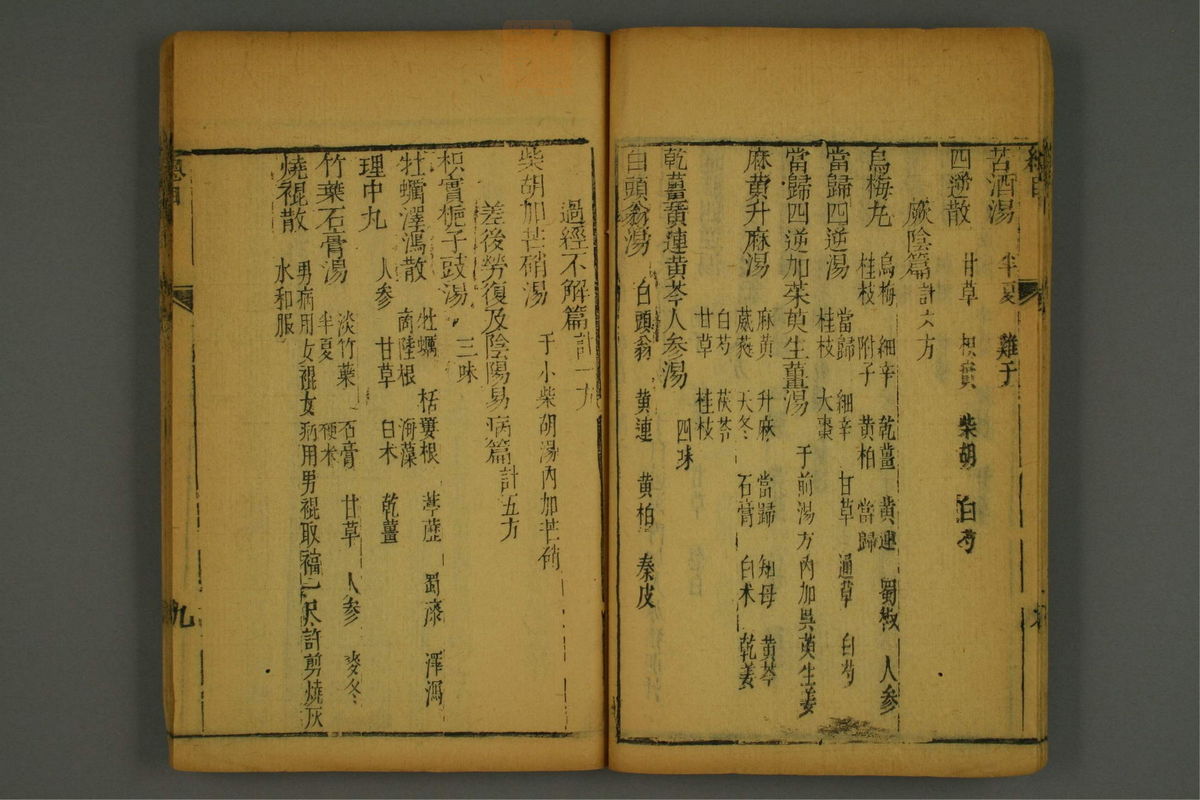 苦酒湯 半夏 雞子
四逆散 甘草 枳實 柴胡 白芍
厥陰篇計六方
烏梅丸 烏梅 細辛 乾薑 黃連 蜀椒 人參
桂枝 附子 黃柏 當歸
當歸四逆湯 當歸 細辛 甘草 通草 白芍
桂枝 大棗
當歸四逆加茱萸生薑湯 于前湯方內加吳萸生姜
麻黃升麻湯 麻黃 升麻 當歸 知母 黃芩
葳蕤 天冬 石膏 白术 乾姜
白芍 茯苓
甘草 桂枝
乾薑黃連黃芩人參湯 四味
白頭翁湯 白頭翁 黃連 黃柏 秦皮
過經不解篇計一方
柴胡加芒硝湯 于小柴胡湯內加芒硝
差後勞復及陰陽易病篇計五方
枳實梔子豉湯 三味
牡蠣澤瀉散 牡蠣 栝蔞根 葶藶 蜀漆 澤瀉
商陸根 海藻
理中丸 人參 甘草 白术 乾薑
竹葉石膏湯 淡竹葉 石膏 甘草 人參 麥冬
半夏 粳米
燒裩散 男病用女裩女病用男裩取襠一尺許剪燒灰
水和服
九